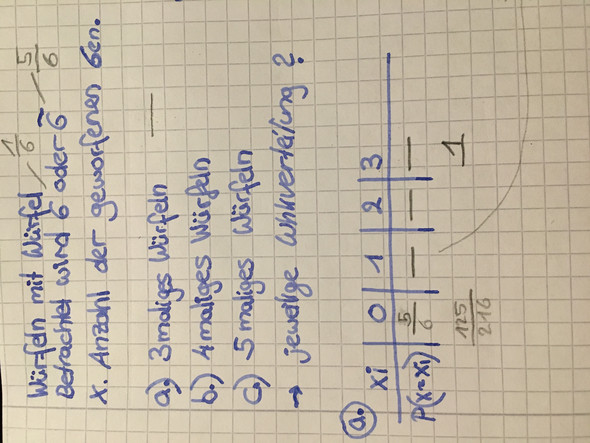 Würfeln mit Würfel 1/6
Betrachtet wird 6 oder 6̃ 5/6
X. Anzahl der geworfenen 6en.
a.) 3maliges Würfeln —
b.) 4maliges Würfeln
c.) 5maliges Würfeln
→ jeweilige Whkverteilung?
a.
xi | 0 | 1 | 2 | 3
P(x=xi) | 5/6 | — | — | —
125/216 1